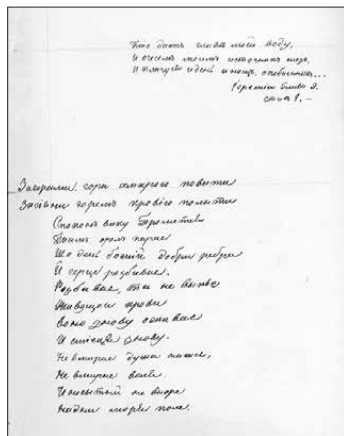 Кто дастъ главѣ моей воду,
И очесемъ моимъ источникъ слезъ,
И плачуся и день и нощь, о побіенныхъ...
Іереміи Глава 9.
стихъ 1. –
Загорами горы хмарою повиты
Засіяни горемъ кровію политы
Споконъ вику Прометея
Тамъ орелъ карае
Що день божій добри ребра
Й серце розбивае.
Розбивае, та не выпье
Живущои крови
Воно знову оживае
И сміется знову.
Не вмирае душа наша,
Не вмирае воля.
И неситый не выоре
На дни моря поле.